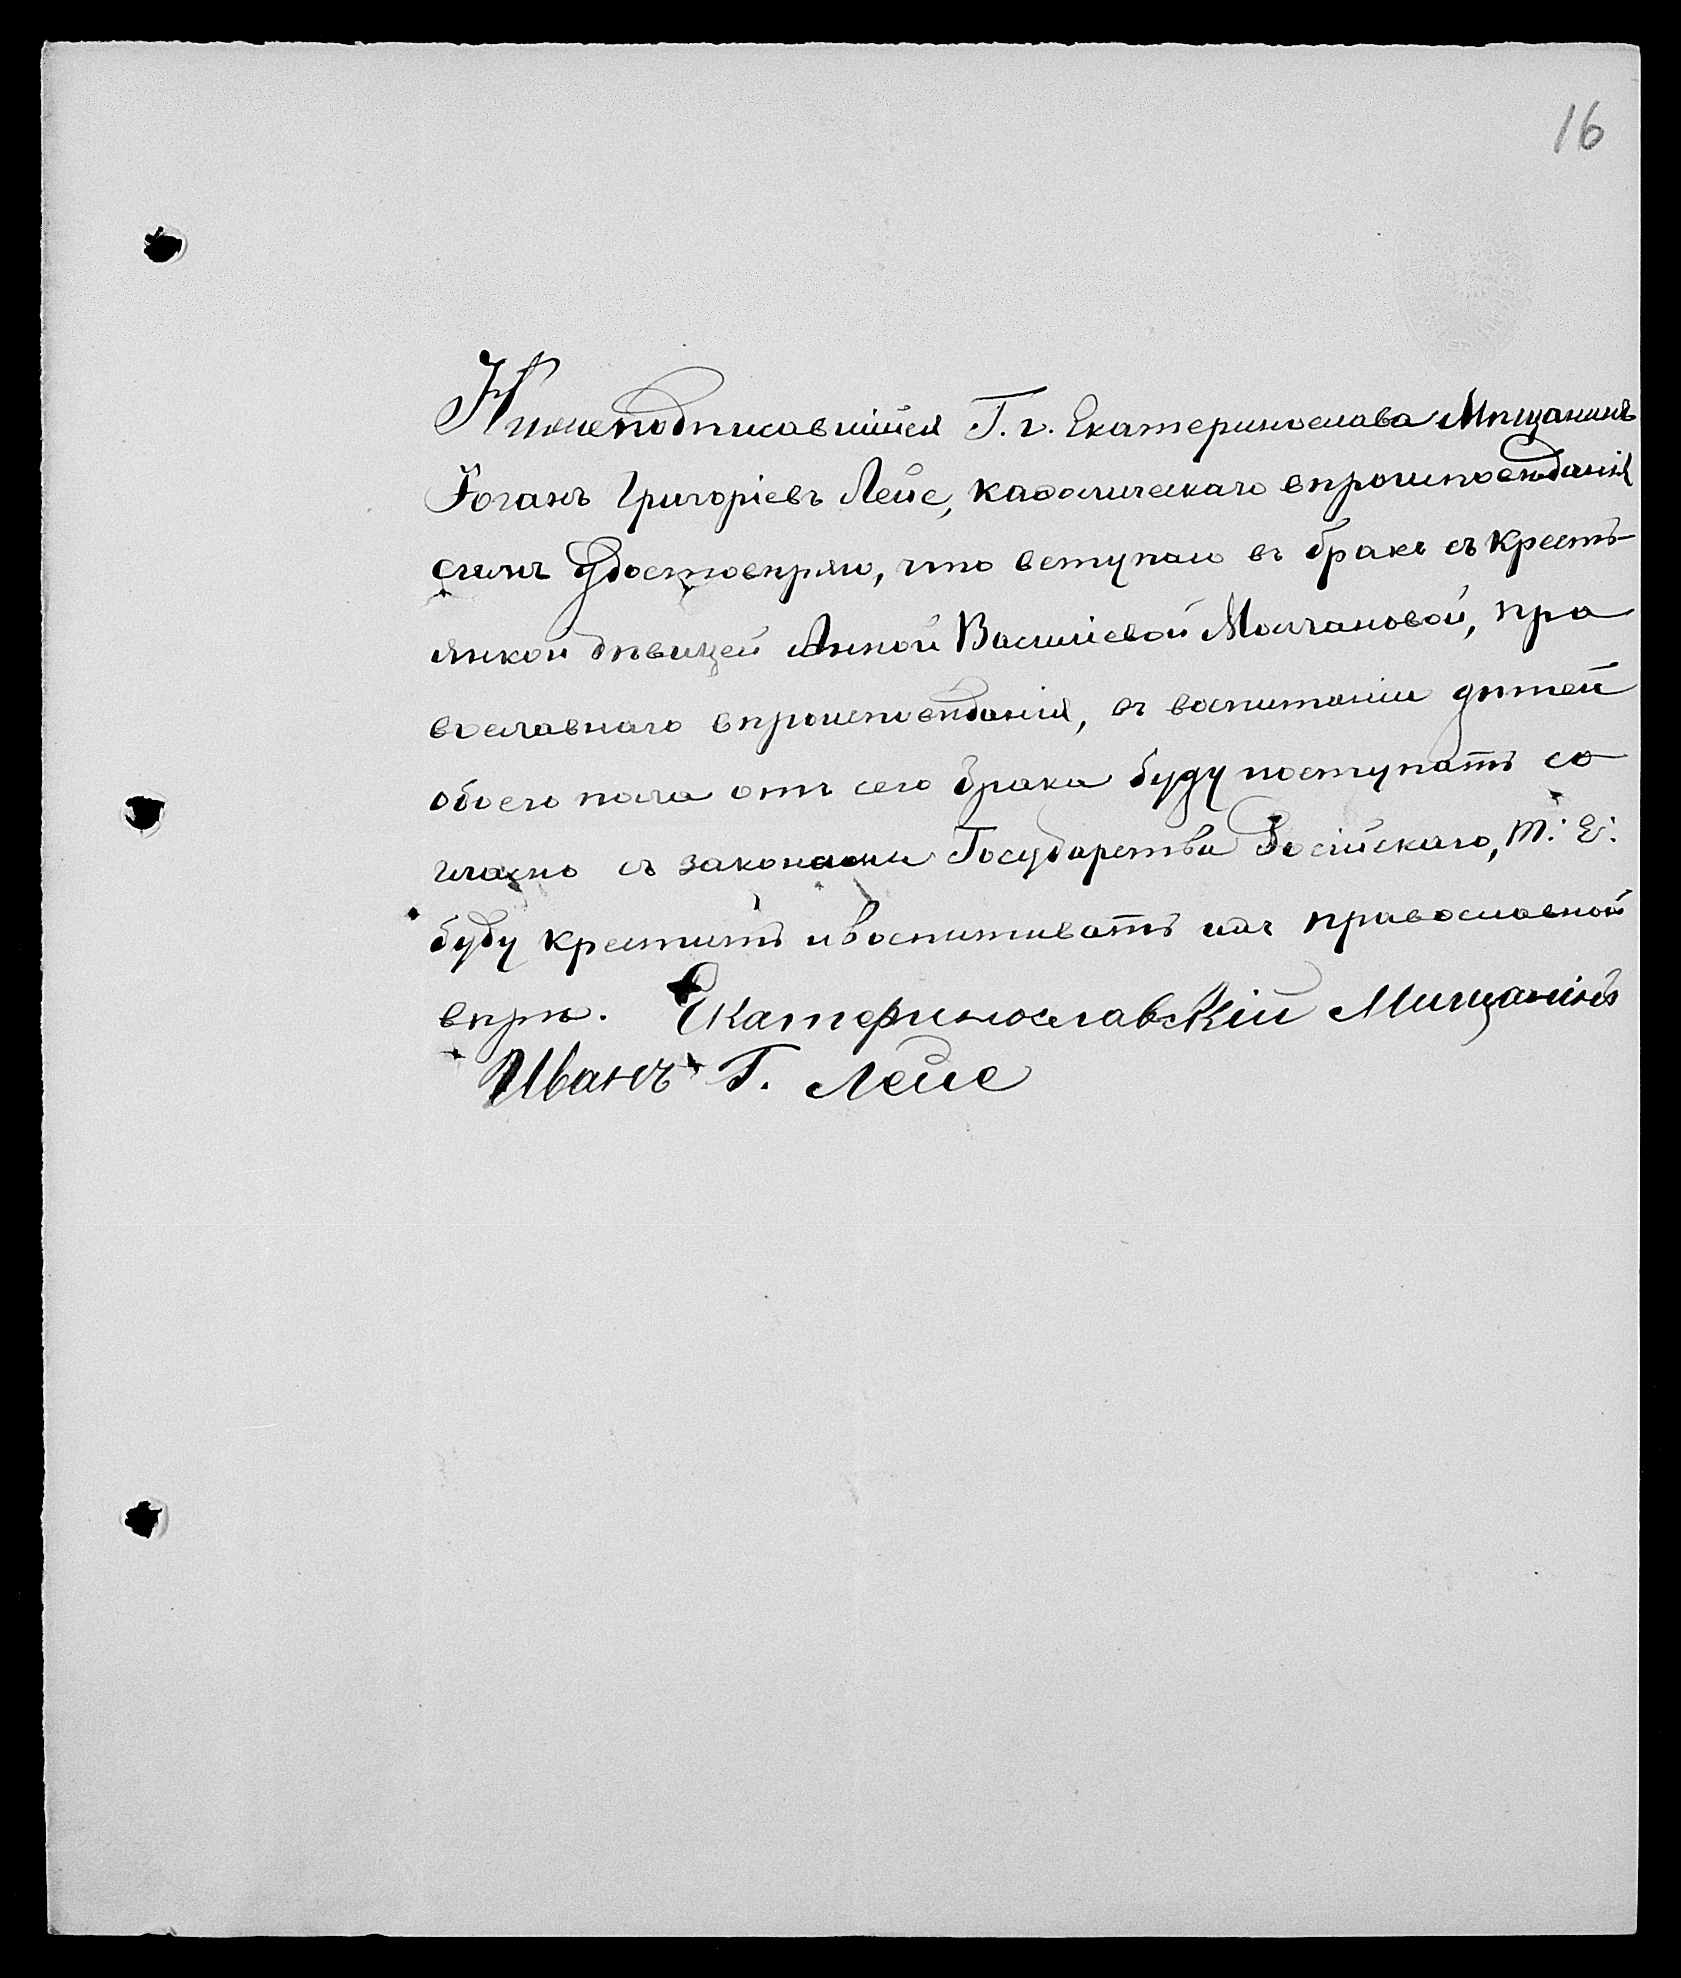 16
Нижеподписавшійся Г. г. Екатеринослава Мѣщанинъ
Іоганъ Григоріевъ Лейс, каѳолическаго вѣроисповѣданія
симъ Удостовѣряю, что вступаю въ бракъ съ кресть-
янкой дѣвицей Анной Василіевой Молчановой, пра
вославнаго вѣроисповѣданія, въ воспитаніи дѣтей
обоего пола отъ сего брака буду поступать со
гласно съ законами Государства Россійскаго, т. е.
буду крестить и воспитывать въ православной
вѣрѣ. Екатеринославскій Мищанинъ
Иванъ Г. Лейс